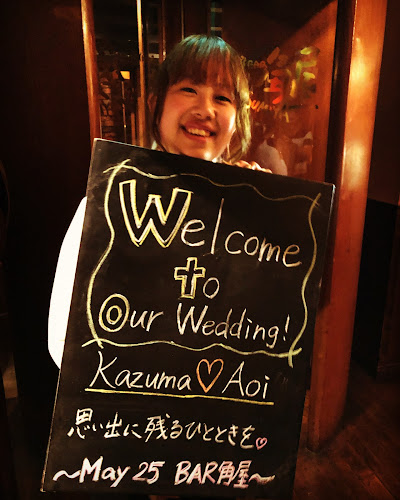 Welcome
to
Our Wedding!
Kazuma♡Aoi
思い出に残るひとときを♥
～May 25 BAR角屋～